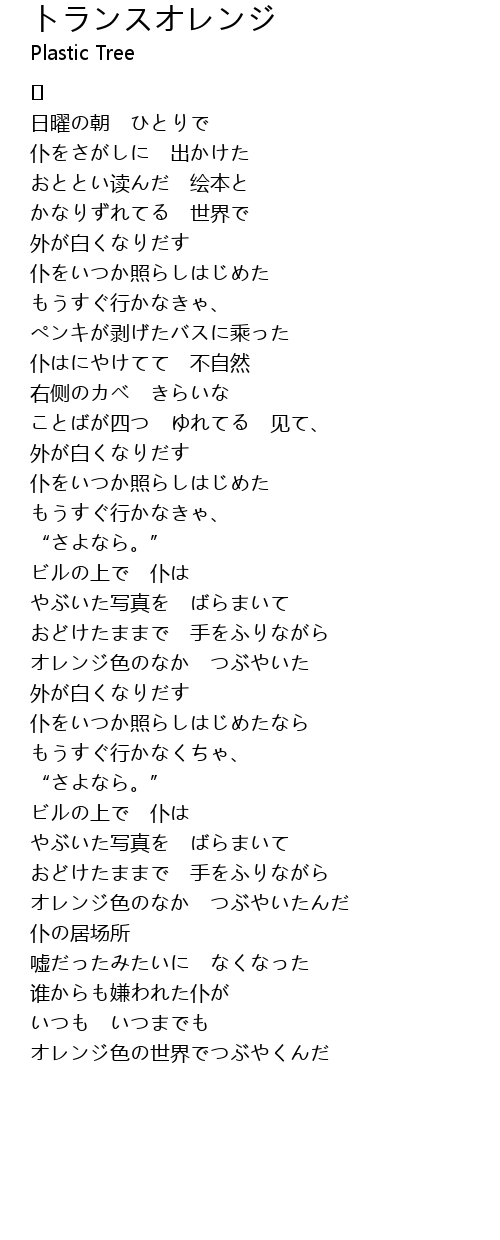 トランスオレンジ
Plastic Tree
[]
日曜の朝　ひとりで
仆をさがしに　出かけた
おととい读んだ　绘本と
かなりずれてる　世界で
外が白くなりだす
仆をいつか照らしはじめた
もうすぐ行かなきゃ、
ペンキが剥げたバスに乘った
仆はにやけてて　不自然
右侧のカベ　きらいな
ことばが四つ　ゆれてる　见て、
外が白くなりだす
仆をいつか照らしはじめた
もうすぐ行かなきゃ、
“さよなら。”
ビルの上で　仆は
やぶいた写真を　ばらまいて
おどけたままで　手をふりながら
オレンジ色のなか　つぶやいた
外が白くなりだす
仆をいつか照らしはじめたなら
もうすぐ行かなくちゃ、
“さよなら。”
ビルの上で　仆は
やぶいた写真を　ばらまいて
おどけたままで　手をふりながら
オレンジ色のなか　つぶやいたんだ
仆の居场所
嘘だったみたいに　なくなった
谁からも嫌われた仆が
いつも　いつまでも
オレンジ色の世界でつぶやくんだ